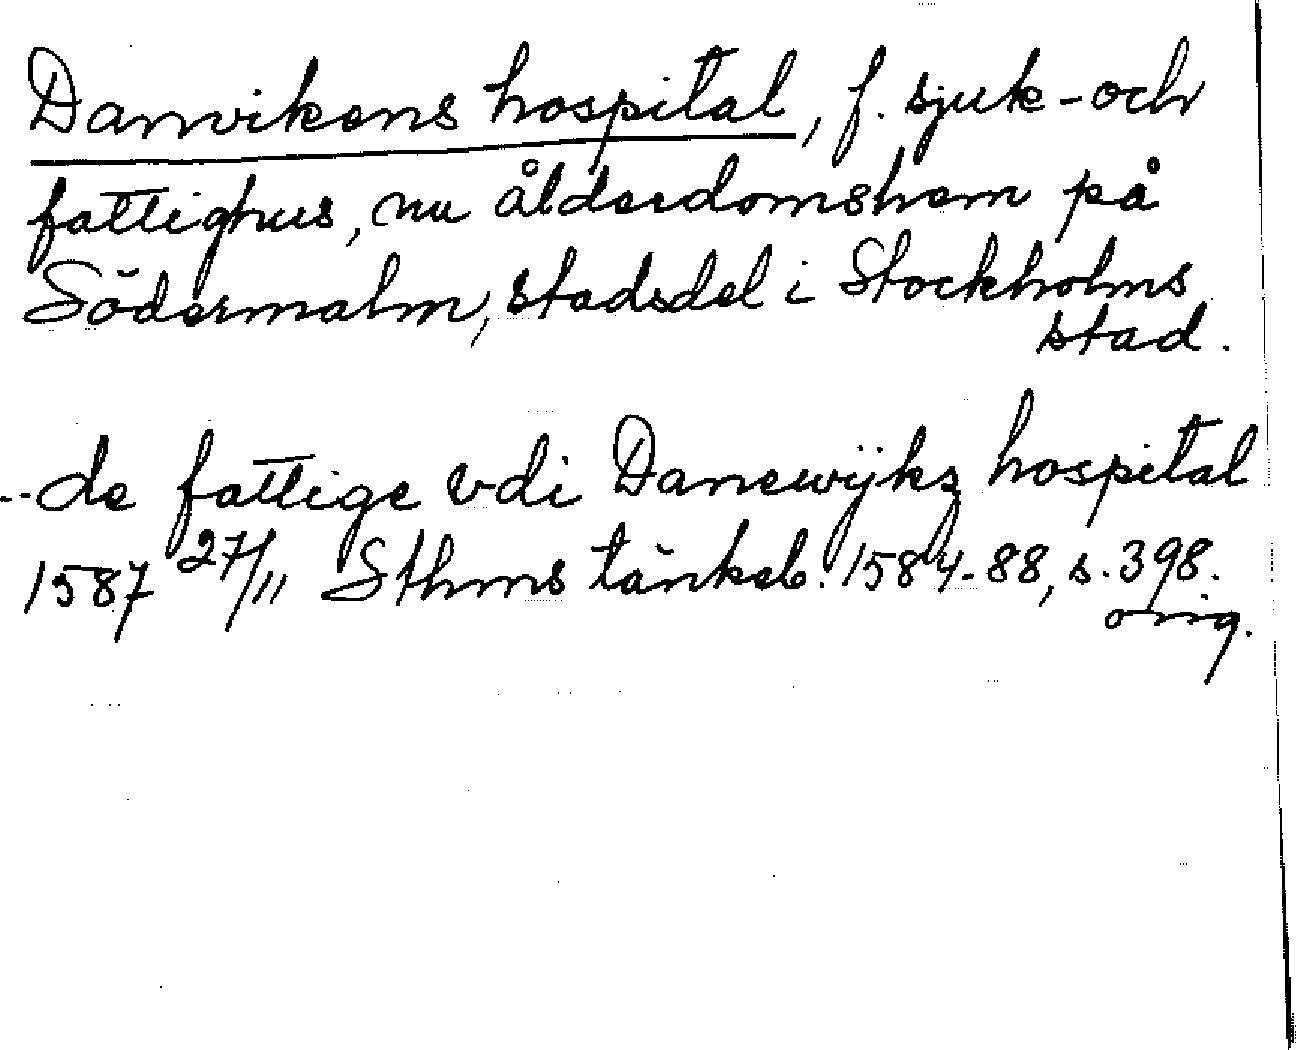 Danvikens hospital, f. sjuk- och
fattighus, nu ålderdomshem på
Södermalm, stadsdel i Stockholms
stad.
..de fattige vdi Danewijkz hospital
1587 27/11 Sthms tänkeb. 1584-88, s. 398.
orig.